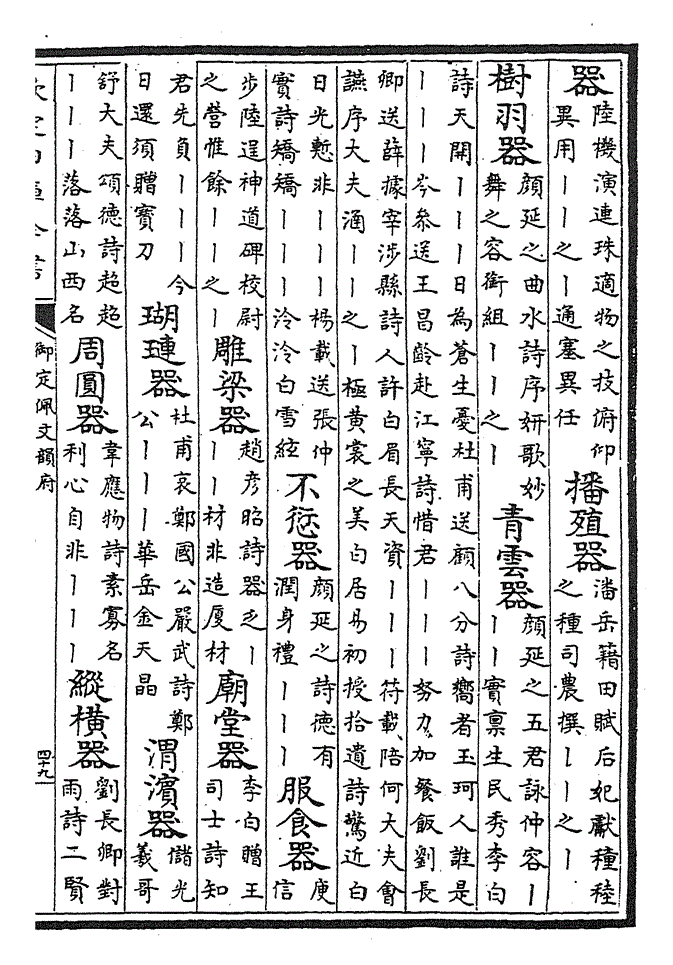 器
陸機演連珠適物之技俯仰
異用丨丨之丨通塞異任
播殖器
潘岳籍田賦后妃獻穜稑
之種司農撰丨丨之丨
樹羽器
顔延之曲水詩序妍歌妙
舞之容銜組丨丨之丨
青雲器
顔延之五君詠仲容丨
丨丨實禀生民秀李白
詩天開丨丨丨日為蒼生憂杜甫送顧八分詩嚮者玉珂人誰是
丨丨丨岑參送王昌齡赴江寧詩惜君丨丨丨努力加餐飯劉長
卿送薛據宰涉縣詩人許白眉長天資丨丨丨符載陪何大夫會
讌序大夫涵丨丨之丨極黄裳之美白居易初授拾遺詩驚近白
日光慙非丨丨丨楊載送張仲
實詩矯矯丨丨丨泠泠白雪絃
不愆器
顔延之詩德有
潤身禮丨丨丨
服食器
庾
信
步陸逞神道碑校尉
之營惟餘丨丨之丨
雕梁器
趙彦昭詩器乏丨
丨丨材非造厦材
廟堂器
李白贈王
司士詩知
君先負丨丨丨今
日還須贈寳刀
瑚璉器
杜甫哀鄭國公嚴武詩鄭
公丨丨丨華岳金天晶
渭濱器
儲光
羲哥
舒大夫頌德詩超超
丨丨丨落落山西名
周圓器
韋應物詩素寡名
利心自非丨丨丨
縱橫器
劉長卿對
雨詩二賢
欽定四庫全書
御定佩文韻府
四十九